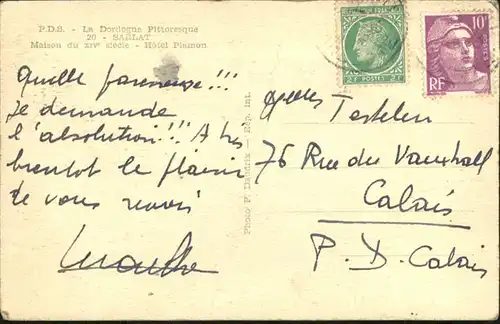 P.D.S. - La Dordogne Pittoresque
20 - SARLAT
Maison du XIVe siècle - Hôtel Plamon
Quelle paresseuse!!!
Je demande
l'absolution!!! A très
bientot le plaisir
de vous revoir
Photo P. Daudrix — Rep. Int.
Testelin
76 Rue du Vauxhall
Calais
P. D. Calais
2F POSTES 2F
10F
RF